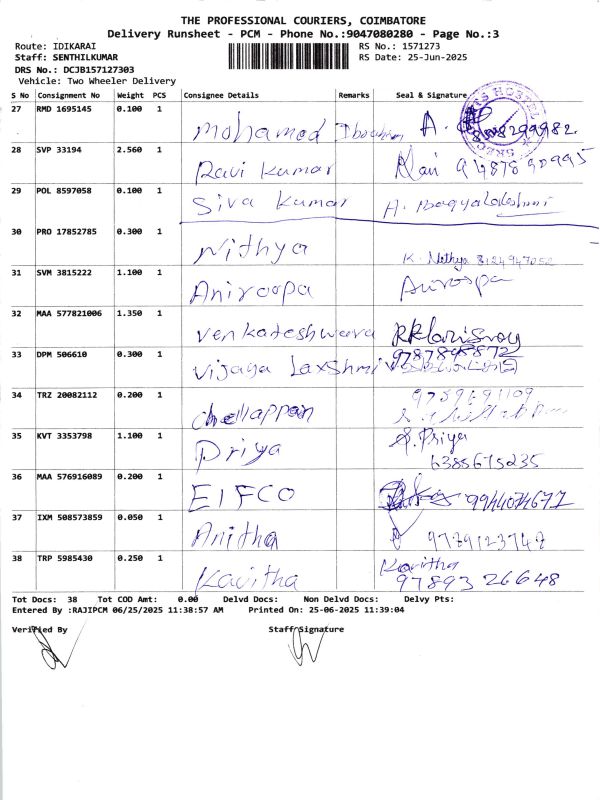 THE PROFESSIONAL COURIERS, COIMBATORE
Delivery Runsheet - PCM - Phone No.:9047080280 - Page No.:3
Route: IDIKARAI RS No.: 1571273
Staff: SENTHILKUMAR RS Date: 25-Jun-2025
DRS No.: DCJB157127303
Vehicle: Two Wheeler Delivery
S No Consignment No Weight PCS Consignee Details Remarks Seal & Signature
27 RMD 1695145 0.100 1 Mohamed Ibrahim
28 SVP 33194 2.560 1 Ravi Kumar Ravi 94878 90995
29 POL 8597058 0.100 1 Siva Kumar A. Bagyalakshmi
30 PRO 17852785 0.300 1 Nithya K. Nithya 8124947052
31 SVM 3815222 1.100 1 Aniroopa Aniroopa
32 MAA 577821006 1.350 1 Venkateshwara
33 DPM 506610 0.300 1 Vijaya Laxshmi
34 TRZ 20082112 0.200 1 Chellappan 9789691109
35 KVT 3353798 1.100 1 Priya S. Priya
6385675235
36 MAA 576916089 0.200 1 EIFCO 9944074677
37 IXM 508573859 0.050 1 Anitha
38 TRP 5985430 0.250 1 Kavitha Kavitha
97893 26648
Tot Docs: 38 Tot COD Amt: 0.00 Delvd Docs: Non Delvd Docs: Delvy Pts:
Entered By :RAJIPCM 06/25/2025 11:38:57 AM Printed On: 25-06-2025 11:39:04
Verified By Staff Signature